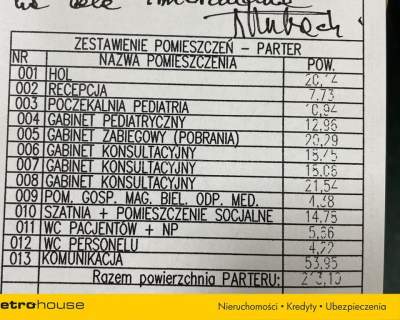 ZESTAWIENIE POMIESZCZEŃ - PARTER
NR NAZWA POMIESZCZENIA POW.
001 HOL 20,14
002 RECEPCJA 7,73
003 POCZEKALNIA PEDIATRIA 10,94
004 GABINET PEDIATRYCZNY 12,96
005 GABINET ZABIEGOWY (POBRANIA) 20,29
006 GABINET KONSULTACYJNY
007 GABINET KONSULTACYJNY
008 GABINET KONSULTACYJNY 21,54
009 POM. GOSP. MAG. BIEL. ODP. MED.
010 SZATNIA + POMIESZCZENIE SOCJALNE 14,75
011 WC PACJENTÓW + NP
012 WC PERSONELU
013 KOMUNIKACJA 53,95
Razem powierzchnia PARTERU:
etrohouse
Nieruchomości • Kredyty • Ubezpieczenia